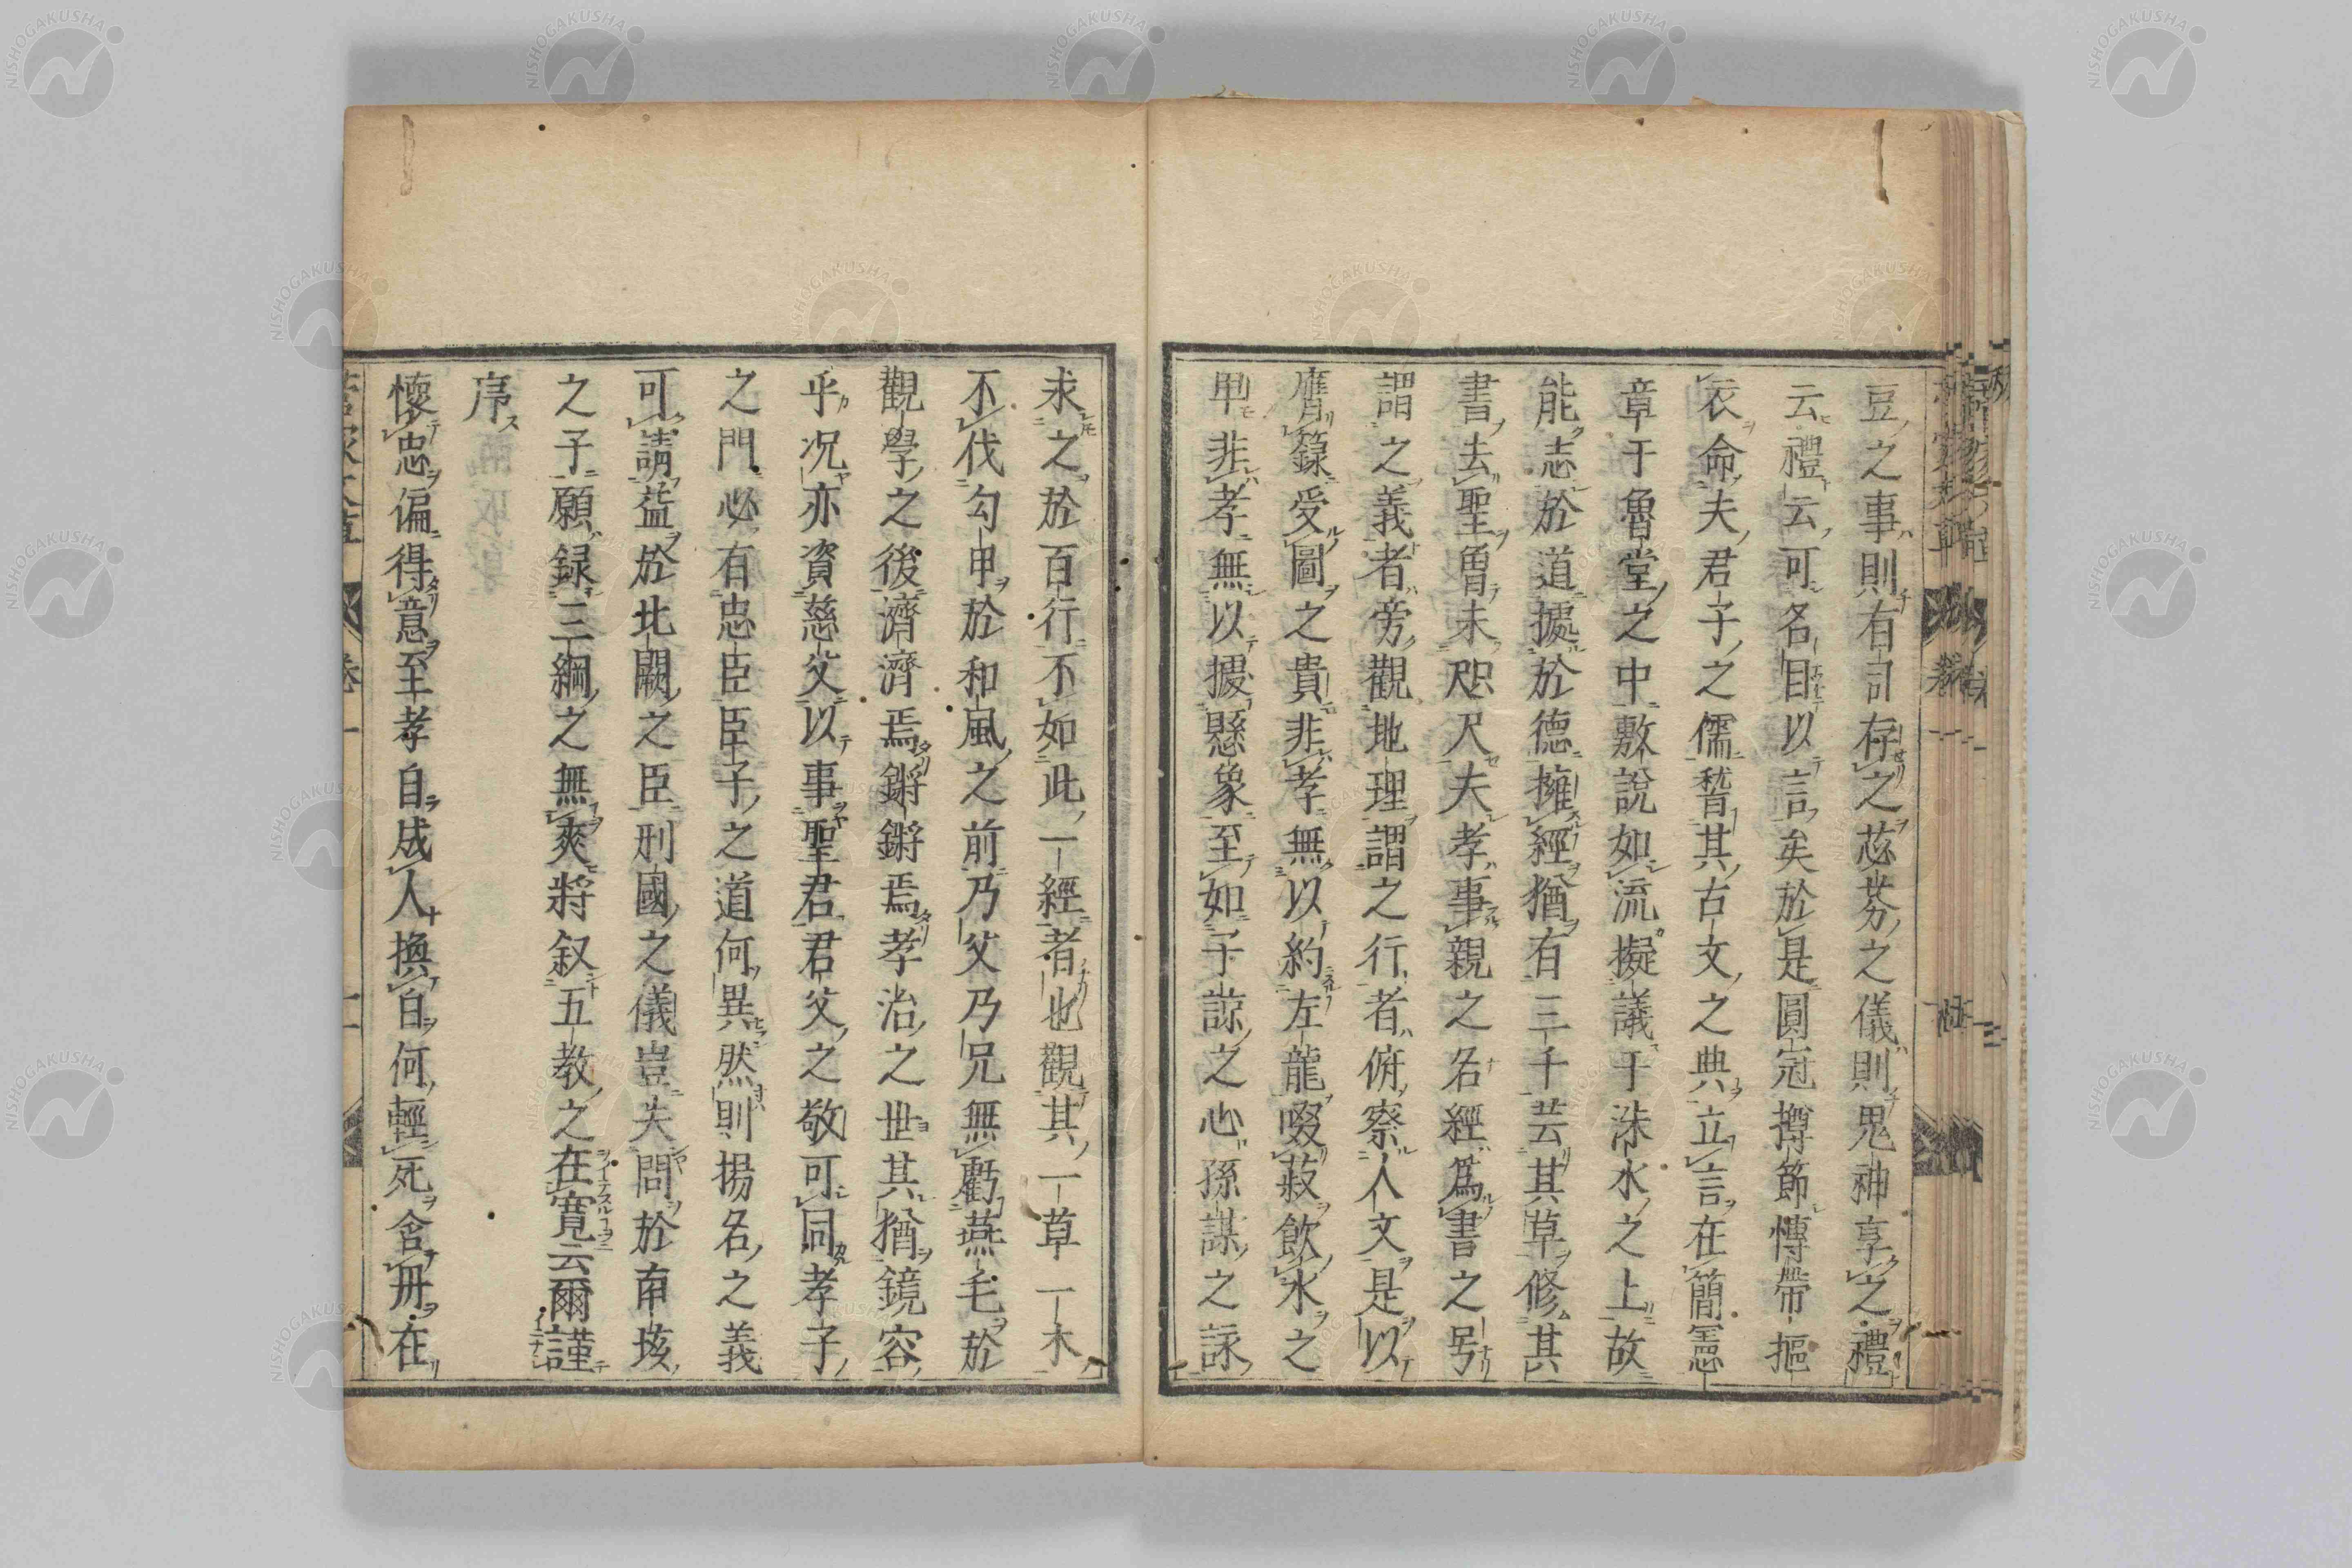 豆之事則有司存之苾芬之儀則鬼神享之禮
云禮云可名目以言矣於是圓冠撙節慱帶摳
衣命夫君子之儒稽其古文之典立言在簡憲
章于魯堂之中敷說如流擬議于洙水之上故
能志於道據於德擁經猶有三千芸其草修其
書去聖曾未咫尺夫孝事親之名經爲書之号
謂之義者旁觀地理謂之行者俯察人文是以
膺籙受圖之貴非孝無以約左龍啜菽飲水之
卑非孝無以援懸象至如子諒之心孫謀之詠
求之於百行不如此一經者也觀其一草一木
不伐勾甲於和風之前乃父乃兄無虧燕毛於
觀學之後濟濟焉鏘鏘焉孝治之世其猶鏡容
乎况亦資慈父以事聖君君父之敬可同孝子
之門必有忠臣臣子之道何異然則揚名之義
可請益於北闕之臣刑國之儀豈失問於南垓
之子願録三綱之無爽將叙五教之在寬云爾謹
序
懷忠偏得意至孝自成人換白何輕死含丹在